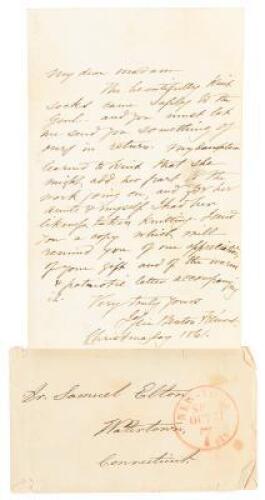 My dear madam.
The beautifully knit
socks came safely to the
Genl.. and you must let
me send you something of
ours in return. My daughter
learned to knit that she
might add her part to the
work going on, and for her
aunts & myself I had her
likeness taken knitting. I send
you a copy which will
remind you of our appreciation
of your gift and of the warm
& patriotic letter accompanying
it.
Very truly yours
Jessie Benton Frémont.
Christmas day 1861.
Dr. Samuel Elton
Watertown,
Connecticut.
NEW-YORK